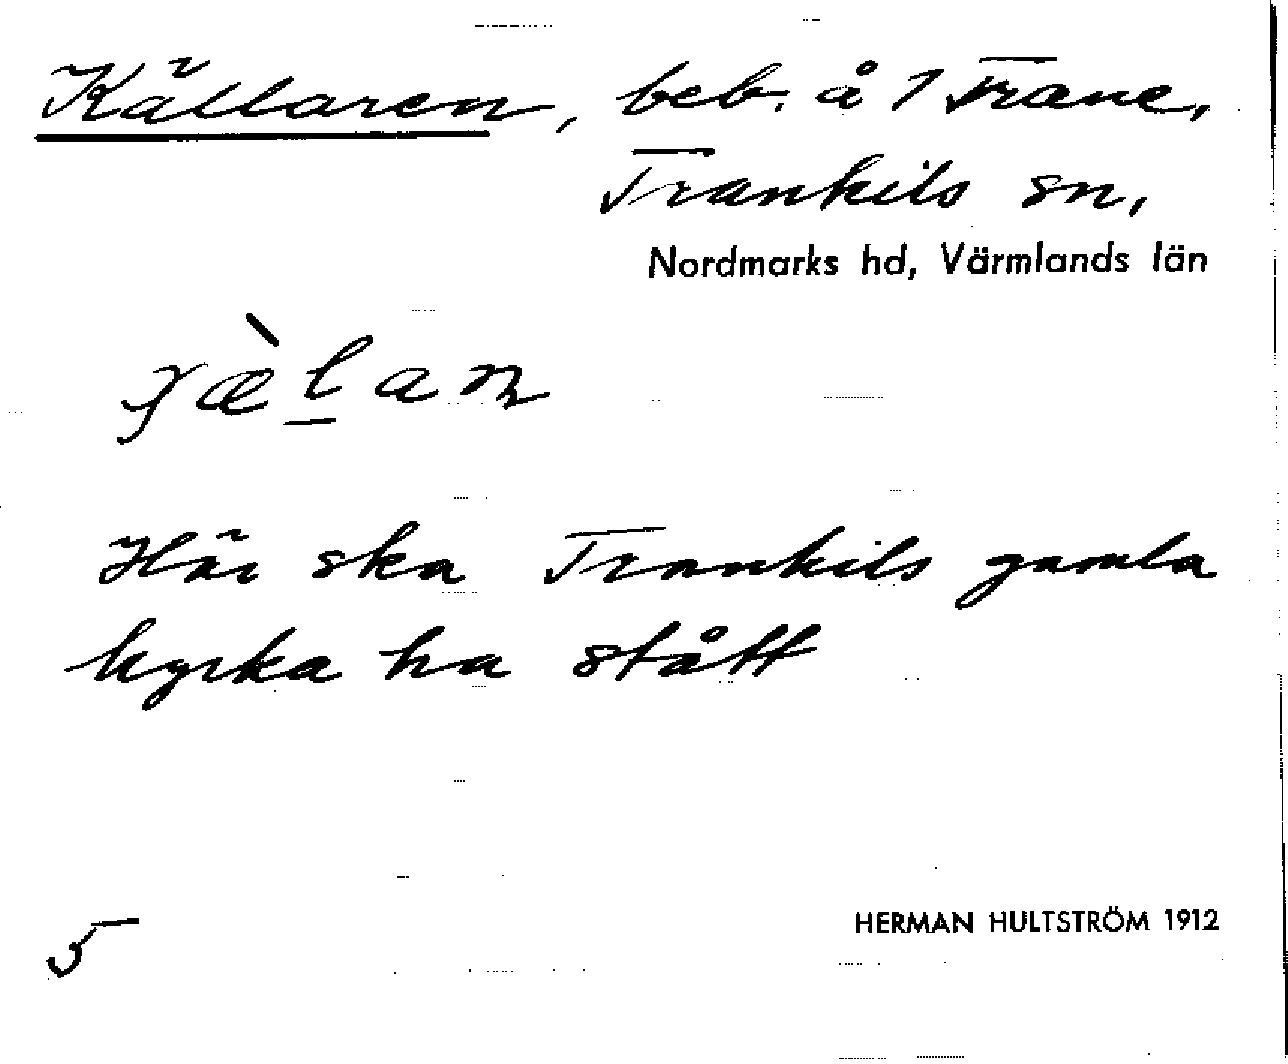 Källaren, beb. å 1 Trane,
Trankils sn,
Nordmarks hd, Värmlands län
Här ska Trankils gamla
kyrka ha stått
5
HERMAN HULTSTRÖM 1912